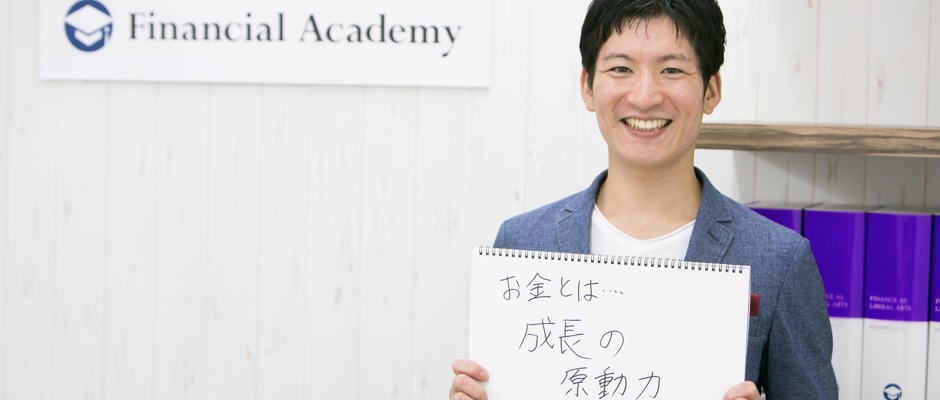 Financial Academy
お金とは....
成長の
原動力
FINANCE AS
LIBERAL ARTS